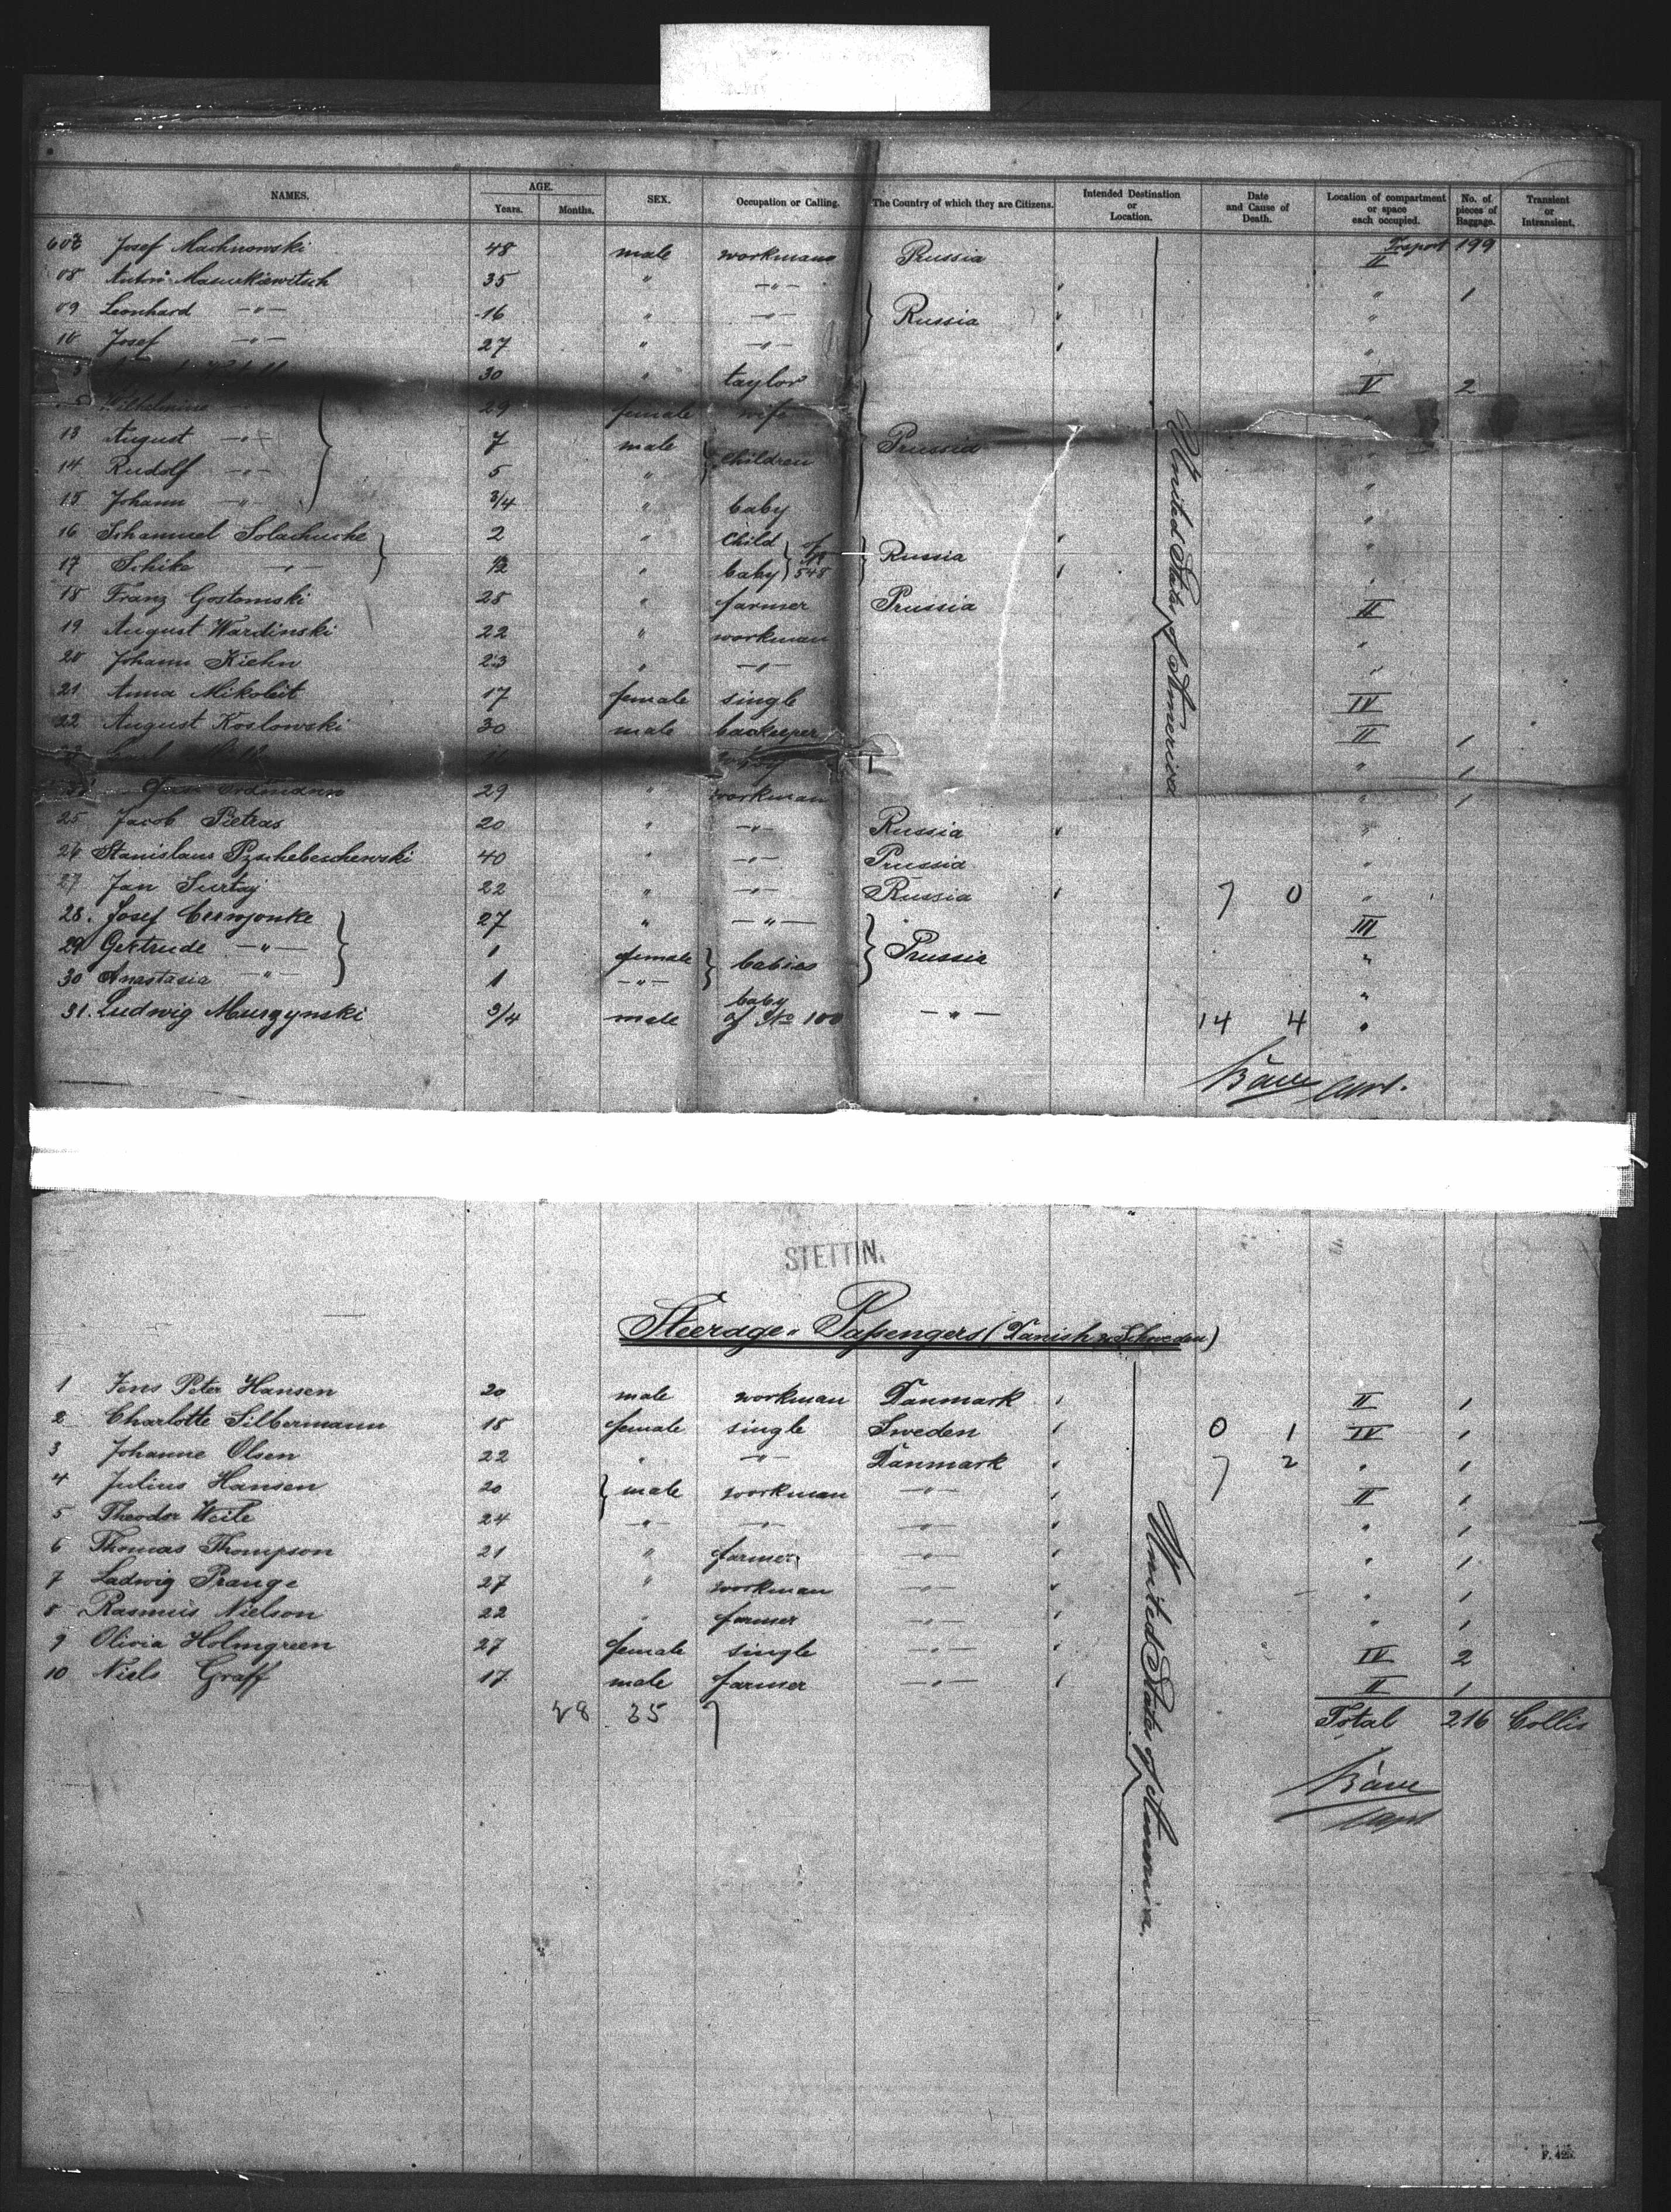 NAMES. AGE. Years. Months. SEX. Occupation or Calling. The Country of which they are Citizens. Intended Destination or Location. Date and Cause of Death. Location of compartment or space each occupied. No. of pieces of Baggage. Transient or Intransient.
Josef Machnowski 48 male workman Prussia II 199
08 Anton Masurkiewitsch 35 " -"- " 1
09 Leonhard -"- 16 " -"- Russia "
10 Josef -"- 27 " -"- "
30 " taylor V 2
Wilhelmine 29 female wife
13 August -"- 7 male children Prussia "
14 Rudolf -"- 5 " "
15 Johann -"- 3/4 " baby "
16 Schamuel Solachusche 2 " child of No 548 Russia "
17 Schike -"- 1/2 " baby "
18 Franz Gostomski 28 " farmer Prussia II
19 August Wardinski 22 " workman "
20 Johann Kiehn 23 " -"- "
21 Anna Mikoleit 17 female single IV
22 August Koslowski 30 male bookeeper II 1
" 1
Erdmann 29 " workman " 1
25 Jacob Pietras 20 " -"- Russia "
26 Stanislaus Pzschebeschewski 40 " -"- Prussia "
27 Jan Surtaj 22 " -"- Russia 7 0 "
28. Josef Czerwjonke 27 " -"- III
29 Gertrude -"- 1 female babies Prussia "
30 Anastasia -"- 1 -"- "
31. Ludwig Muszynski 3/4 male baby of No 100 -"- 14 4 "
United States of America
STETTIN.
Steerage-Passengers (Danish & Schweden)
1 Jens Peter Hansen 20 male workman Danmark II 1
2 Charlotte Silbermann 18 female single Sweden 0 1 IV 1
3 Johanne Olsen 22 " -"- Danmark 7 2 " 1
4 Julius Hansen 20 male workman -"- II 1
5 Theodor Weile 24 -"- -"- -"- " 1
6 Thomas Thompson 21 " farmer -"- " 1
7 Ludwig Prange 27 " workman -"- " 1
8 Rasmus Nielson 22 " farmer -"- " 1
9 Olivia Holmgreen 27 female single -"- IV 2
10 Niels Graff 17 male farmer -"- II 1
28 35 7 Total 216 Collis
United States of America.
F. 425.